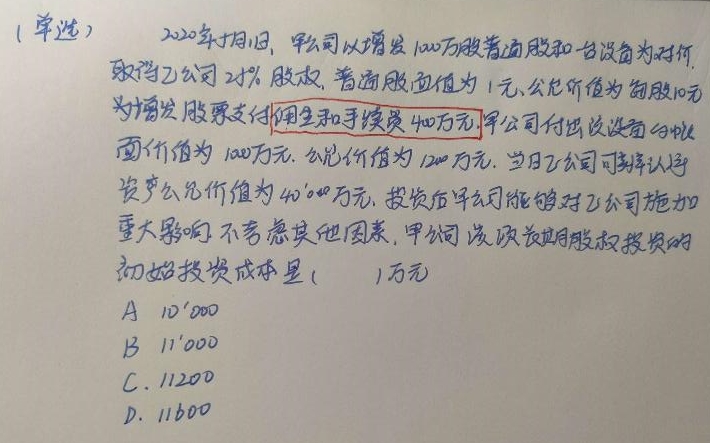 (单选) 2020年5月1日，甲公司以增发1000万股普通股和一台设备为对价，
取得乙公司25%股权，普通股面值为1元、公允价值为每股10元
为增发股票支付佣金和手续费400万元，甲公司付出该设备的账
面价值为1000万元，公允价值为1200万元，当日乙公司可辨认净
资产公允价值为40'000万元，投资后甲公司能够对乙公司施加
重大影响，不考虑其他因素，甲公司该项长期股权投资的
初始投资成本是( )万元
A 10'000
B 11'000
C. 11200
D. 11600